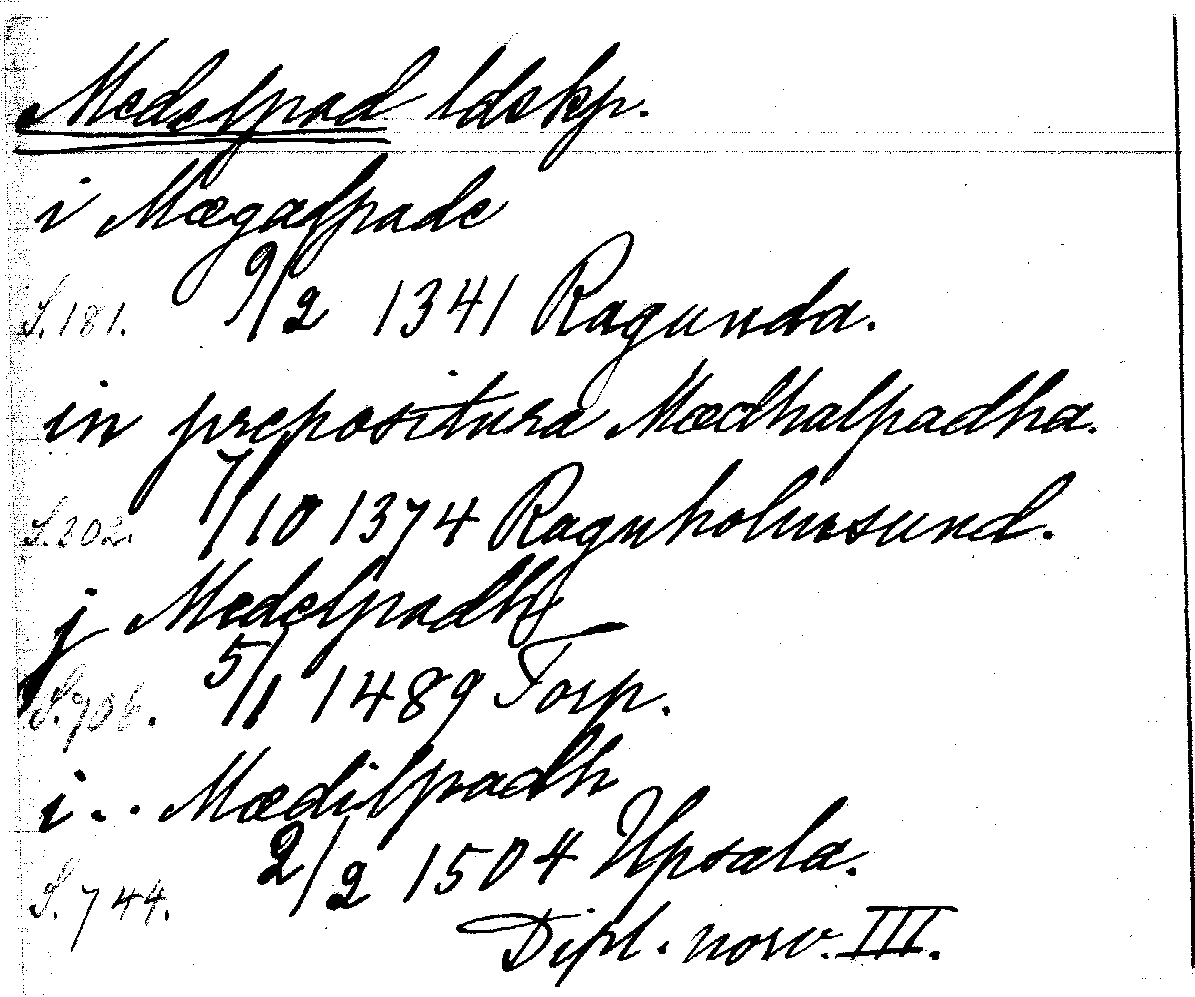 Medelpad ldskp.
i Mægalpade
S. 181. 9/2 1341 Ragunda.
in prepositura Mædhalpadha.
S. 302. 7/10 1374 Ragnholmsund.
j Medelpadh
S. 706. 5/1 1489 Torp.
i . . Mædilpadh
S. 744. 2/2 1504 Upsala.
Dipl. norv. III.